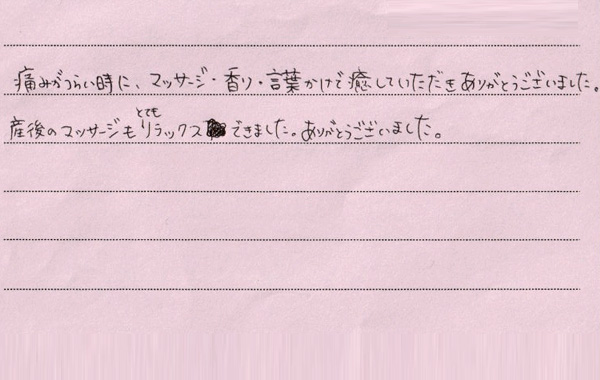 痛みがつらい時に、マッサージ・香り・言葉かけで癒していただきありがとうございました。
産後のマッサージもとてもリラックスできました。ありがとうございました。